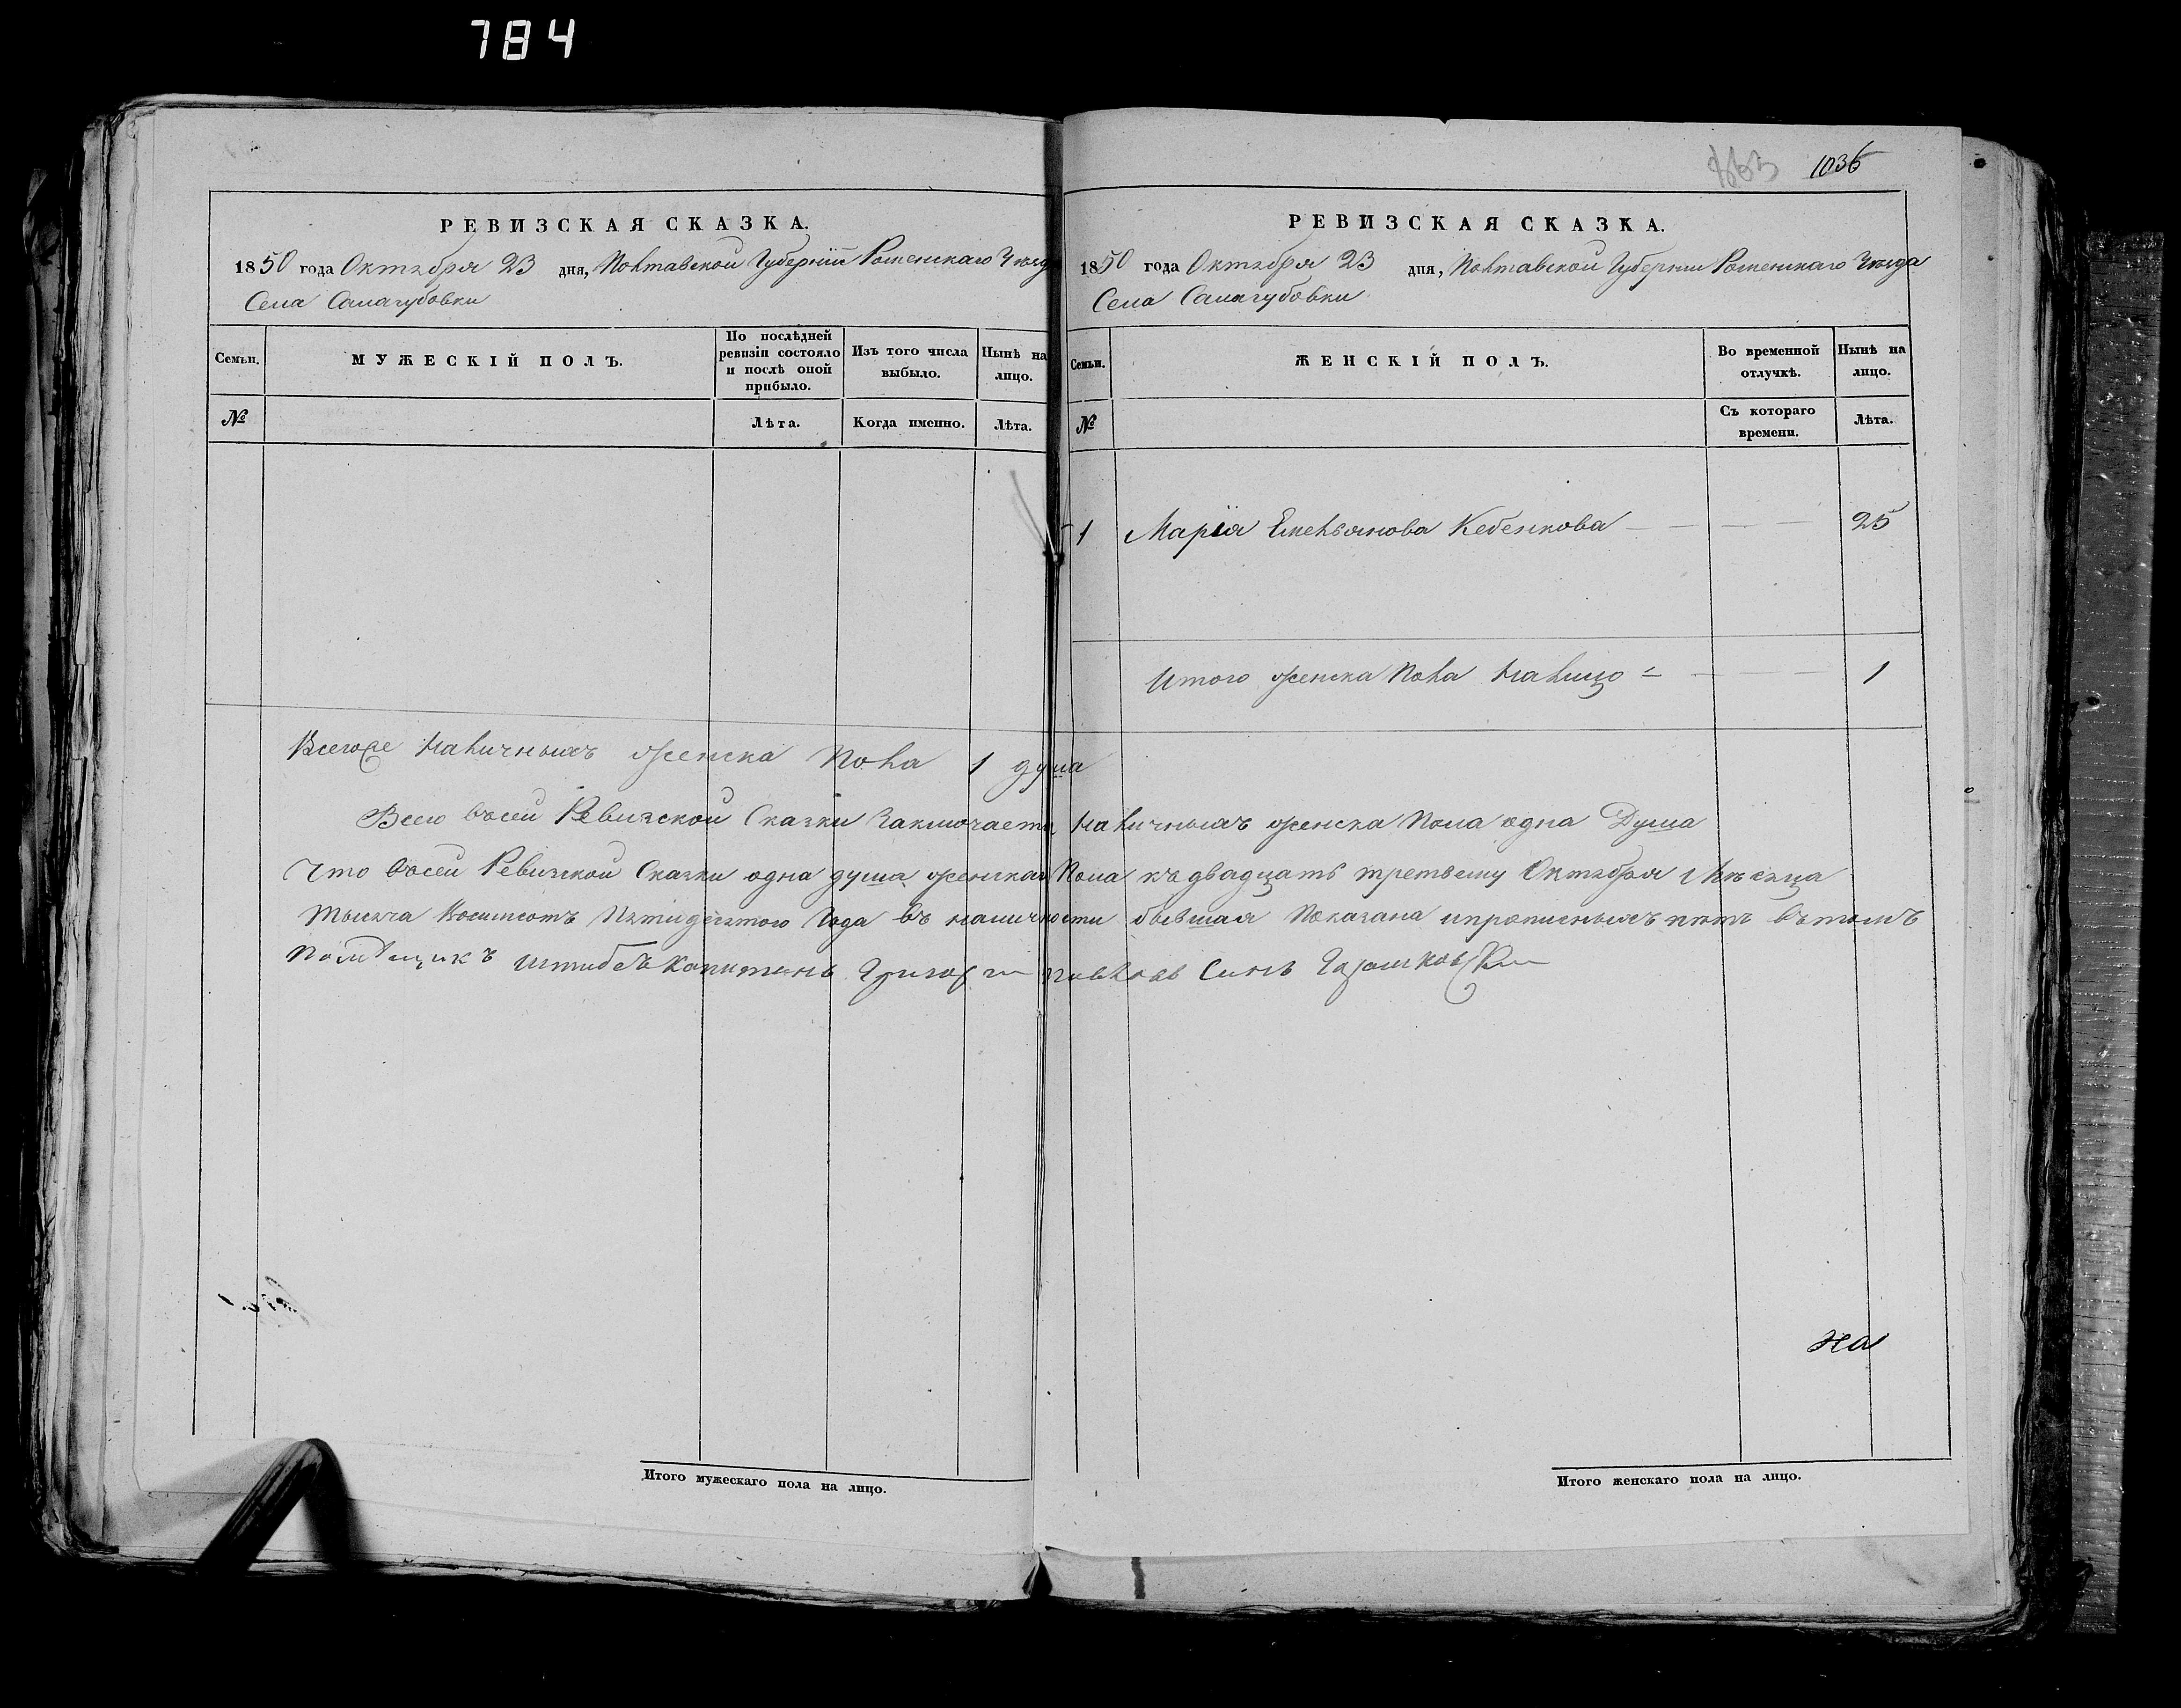 784
1036
РЕВИЗСКАЯ СКАЗКА.
1850 года Октября 23 дня, Полтавской Губернiи Роменскаго Уезд
Села Салагубовки
Семьи. МУЖЕСКІЙ ПОЛЪ. По послѣдней ревизіи состояло и послѣ оной прибыло. Изъ того числа выбыло. Нынѣ на лицо.
№ Лѣта. Когда именно. Лѣта.
Всегоже Наличныхъ женска Пола 1 душа
РЕВИЗСКАЯ СКАЗКА.
1850 года Октября 23 дня, Полтавской Губернии Роменскаго Уезда
Села Салагубовки
Семьи. ЖЕНСКІЙ ПОЛЪ. Во временной отлучкѣ. Нынѣ на лицо.
№ Съ котораго времени. Лѣта.
1 Марiя Емельянова Кебенкова 25
Итого женска Пола Налицо 1
Всего въсей Ревизской Сказки Заключается Наличныхъ женска Пола одна Душа
Что въсей Ревизской Сказки одна душа женска Пола къ двадцать третьему Октября Месяца
Тысяча Восимсотъ Пятидесятого Года въ наличности бывшая Показана ипрописныхъ нетъ въ томъ
Помещикъ штабсъ Капитанъ Григор Павловъ Синъ
на
Итого мужескаго пола на лицо.
Итого женскаго пола на лицо.